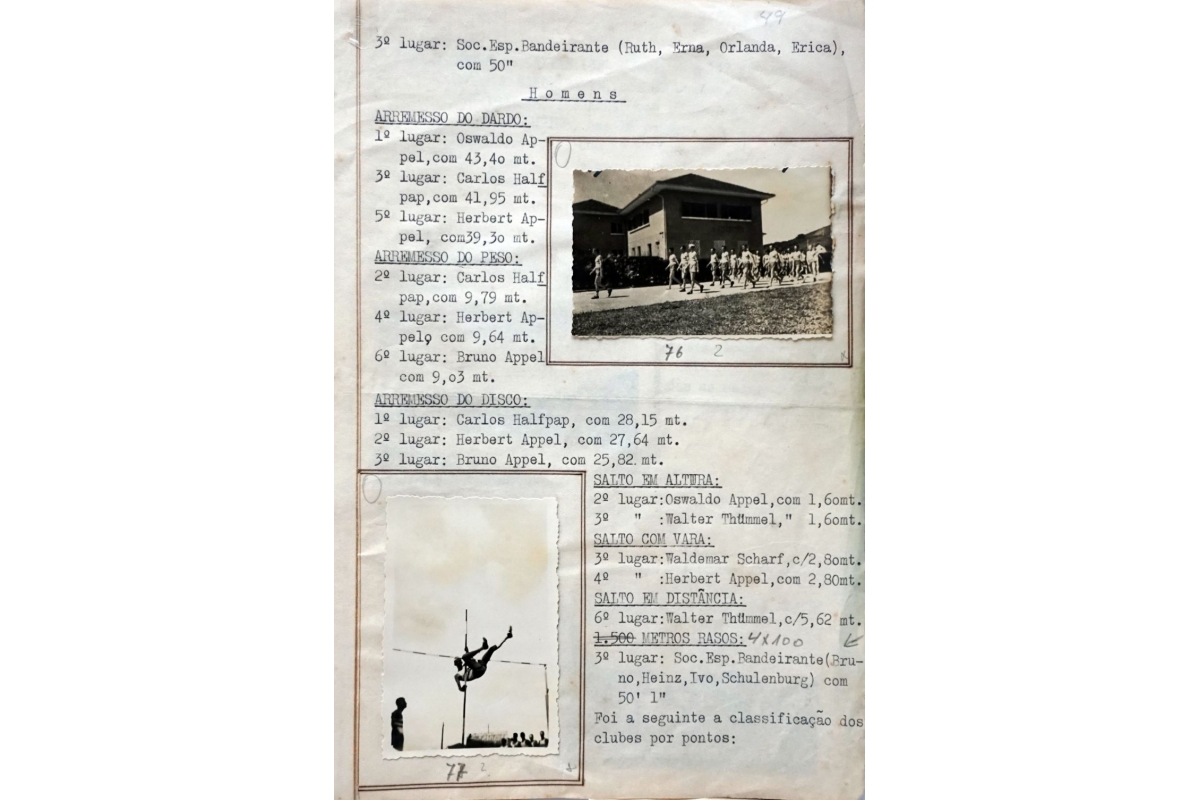 49
3º lugar: Soc.Esp.Bandeirante (Ruth, Erna, Orlanda, Erica),
com 50"
H o m e n s
ARREMESSO DO DARDO:
1º lugar: Oswaldo Ap-
pel,com 43,4o mt.
3º lugar: Carlos Half
pap,com 41,95 mt.
5º lugar: Herbert Ap-
pel, com39,3o mt.
ARREMESSO DO PESO:
2º lugar: Carlos Half
pap,com 9,79 mt.
4º lugar: Herbert Ap-
pel, com 9,64 mt.
6º lugar: Bruno Appel
com 9,o3 mt.
76 2
ARREMESSO DO DISCO:
1º lugar: Carlos Halfpap, com 28,15 mt.
2º lugar: Herbert Appel, com 27,64 mt.
3º lugar: Bruno Appel, com 25,82 mt.
SALTO EM ALTURA:
2º lugar:Oswaldo Appel,com 1,6omt.
3º " :Walter Thümmel," 1,6omt.
SALTO COM VARA:
3º lugar:Waldemar Scharf,c/2,8omt.
4º " :Herbert Appel,com 2,80mt.
SALTO EM DISTÂNCIA:
6º lugar:Walter Thümmel,c/5,62 mt.
1.500 METROS RASOS: 4x100
3º lugar: Soc.Esp.Bandeirante(Bru-
no,Heinz,Ivo,Schulenburg) com
50' 1"
Foi a seguinte a classificação dos
clubes por pontos:
77 2